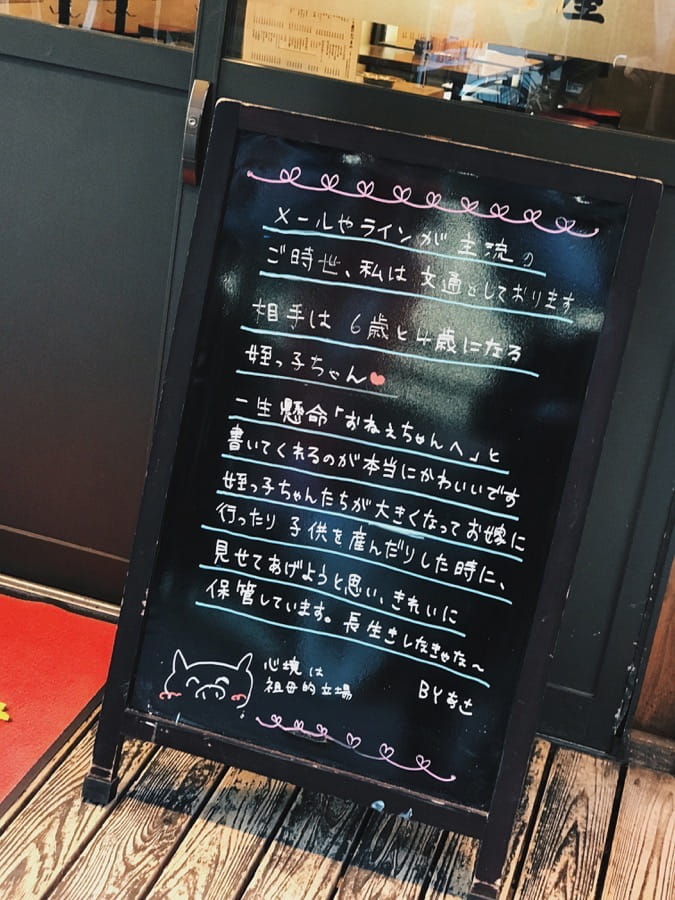 メールやラインが主流の
ご時世、私は文通をしております
相手は6歳と4歳になる
姪っ子ちゃん
一生懸命「おねえちゃんへ」と
書いてくれるのが本当にかわいいです
姪っ子ちゃんたちが大きくなってお嫁に
行ったり子供を産んだりした時に、
見せてあげようと思い、きれいに
保管しています。長生きしなきゃな〜
心境は
祖母的立場
BY